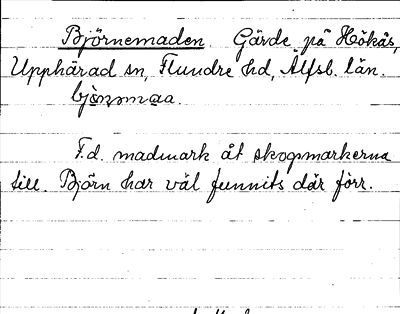 Björnemaden. Gärde på Hökås,
Upphärad sn, Flundre hd, Älfsb. län.
F.d. madmark åt skogsmarkerna
till. Björn har väl funnits där förr.